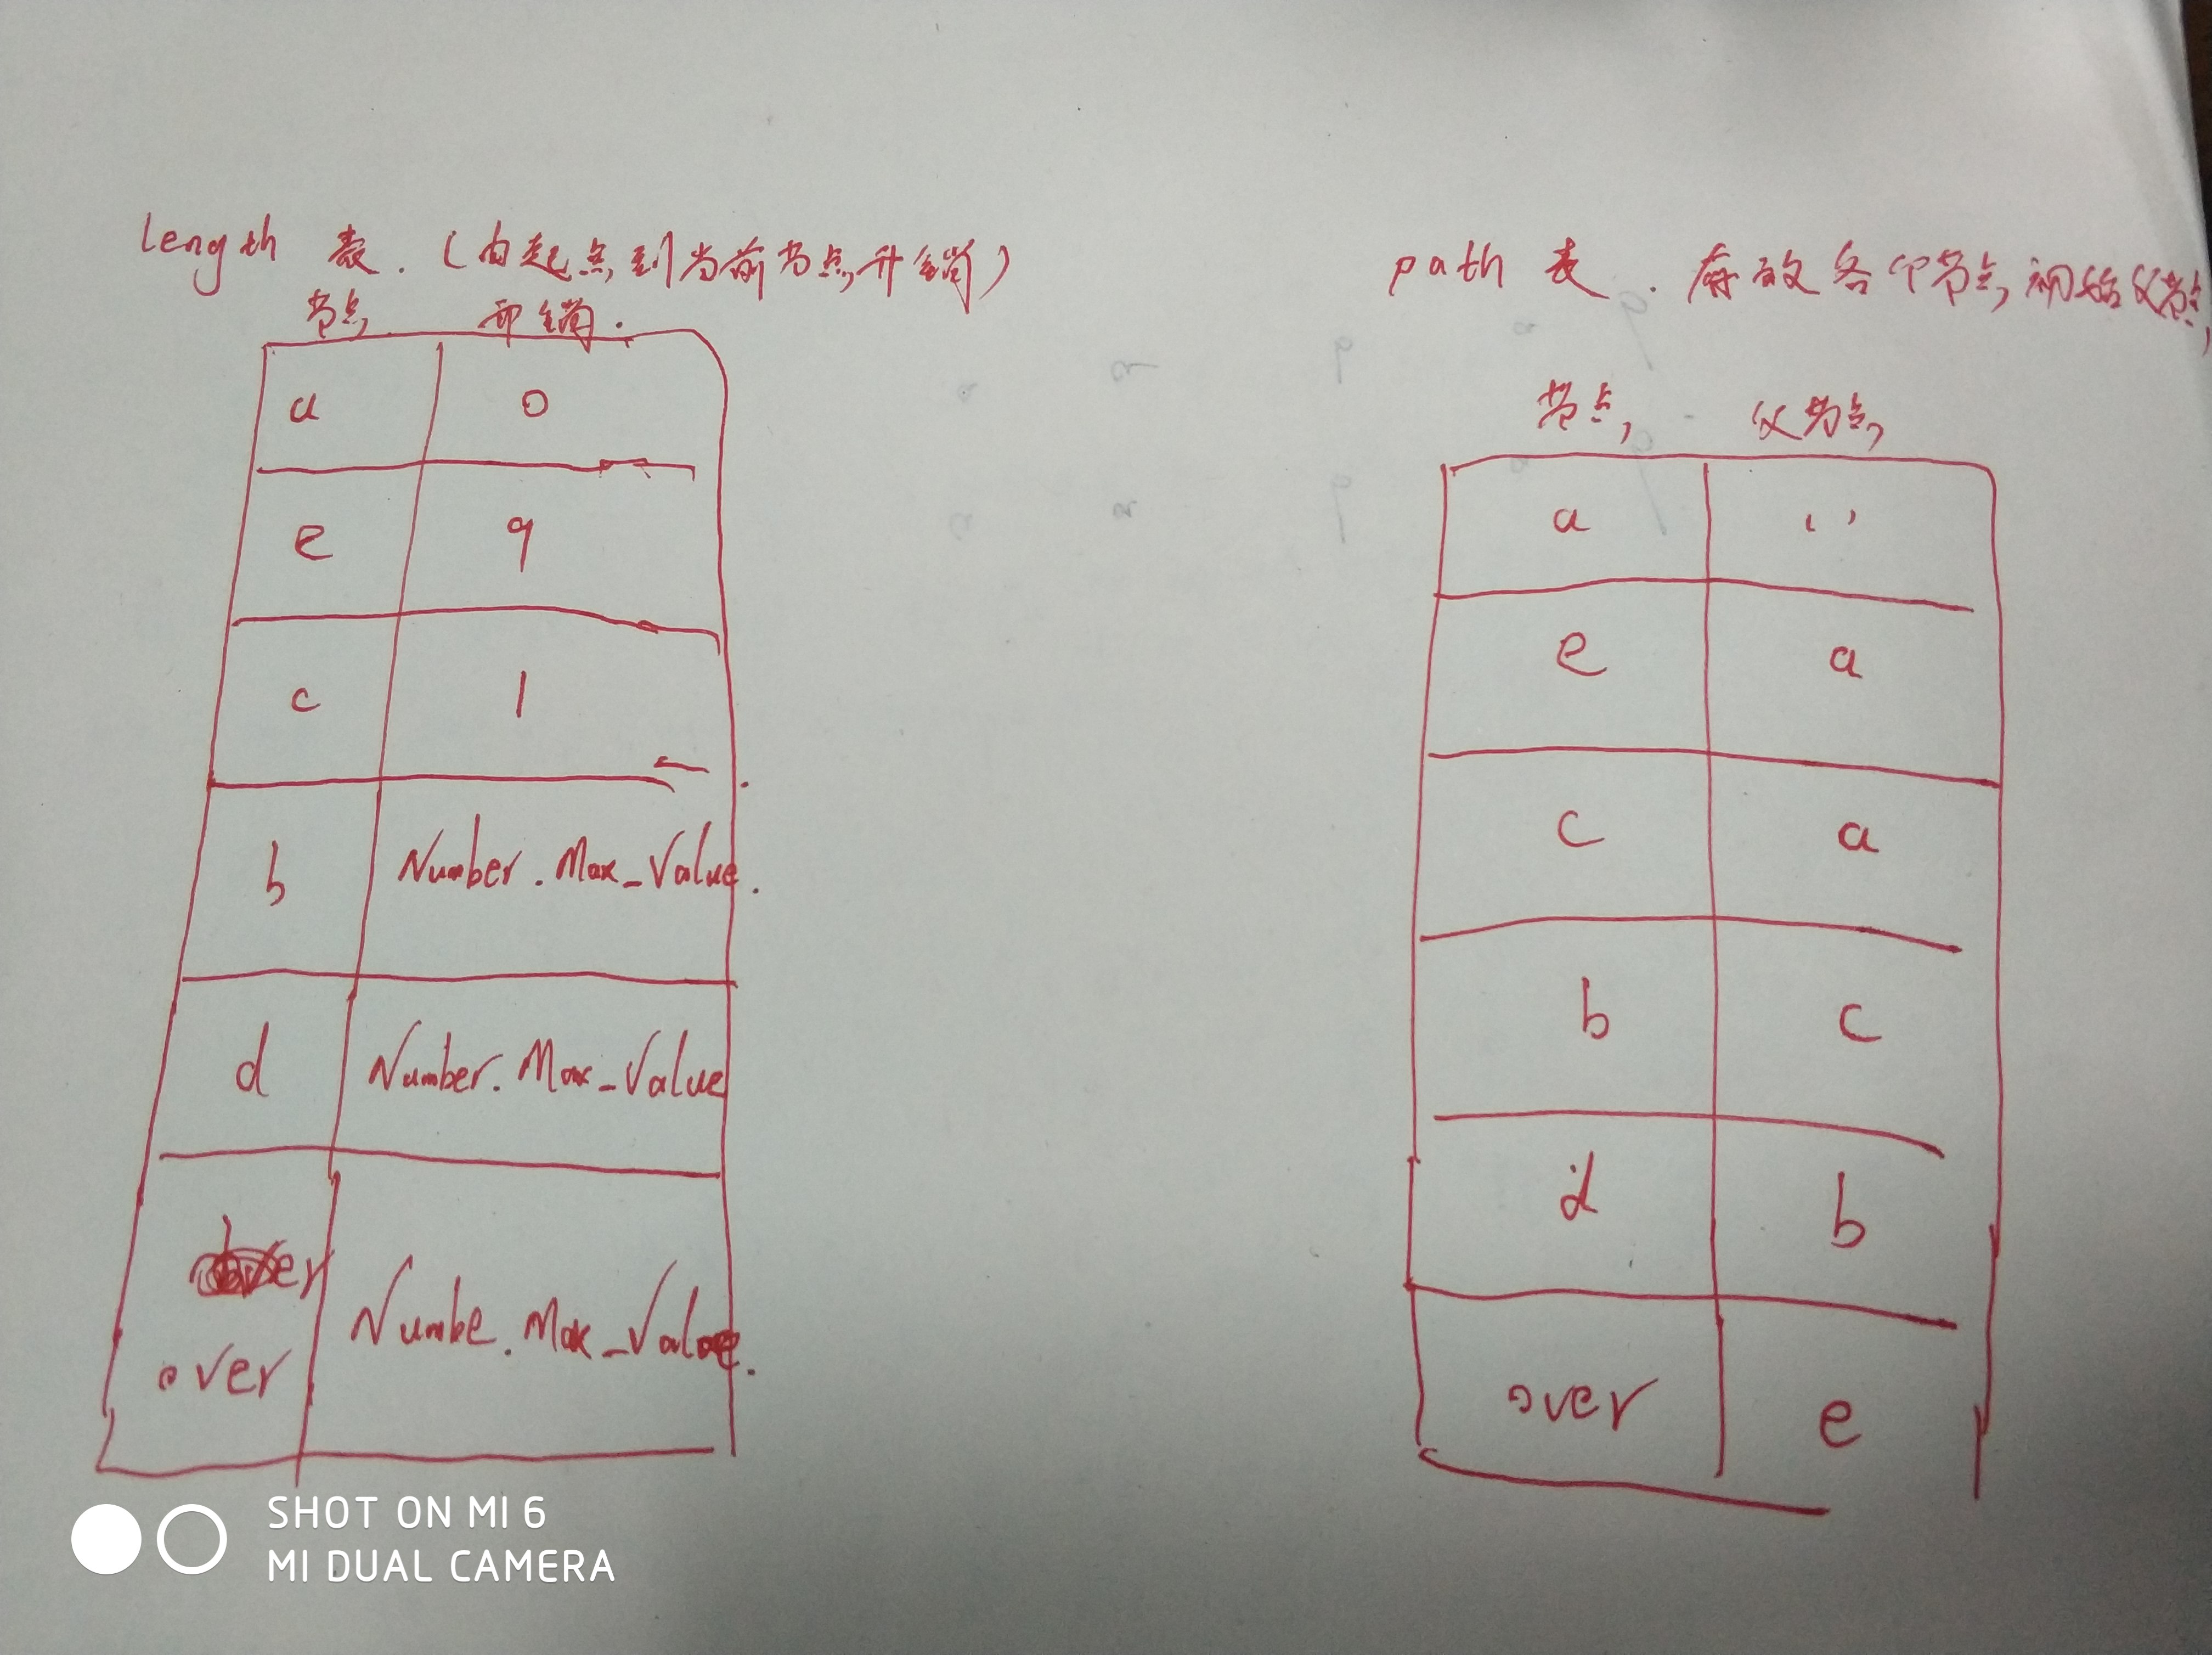 length 表.（由起点到当前节点开销）
节点 开销.
a 0
e 9
c 1
b Number.Max_Value.
d Number.Max_Value
over Numbe.Max_Value.
path 表. 存放各个节点初始父节点
节点, 父节点,
a ' '
e a
c a
b c
d b
over e
SHOT ON MI 6
MI DUAL CAMERA